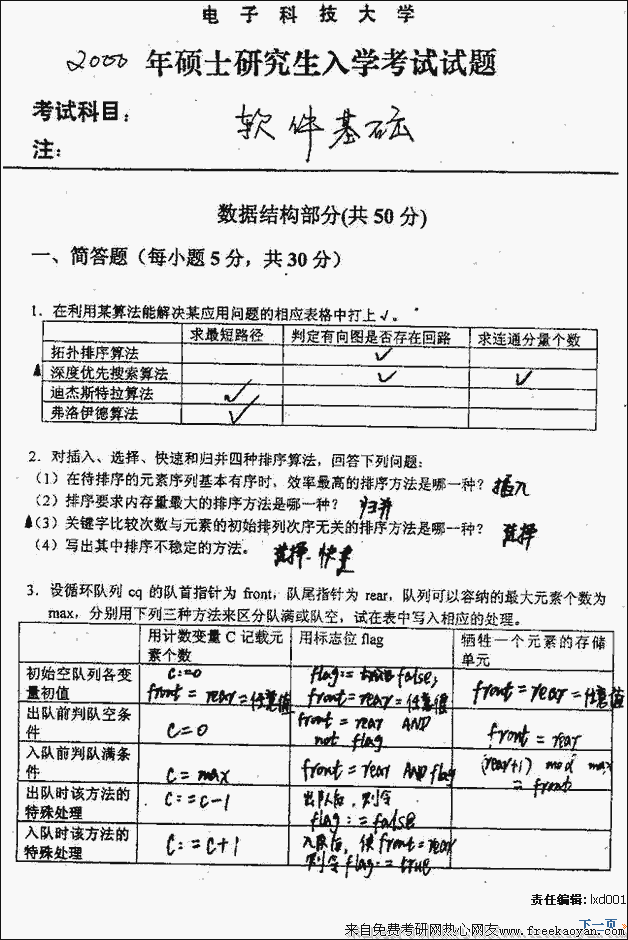 电子科技大学
2000 年硕士研究生入学考试试题
考试科目: 软件基础
注:
数据结构部分(共 50 分)
一、简答题（每小题 5 分，共 30 分）
1. 在利用某算法能解决某应用问题的相应表格中打上√。
求最短路径 判定有向图是否存在回路 求连通分量个数
拓扑排序算法 √
▲ 深度优先搜索算法 √ √
迪杰斯特拉算法 √
弗洛伊德算法 √
2. 对插入、选择、快速和归并四种排序算法，回答下列问题:
（1）在待排序的元素序列基本有序时，效率最高的排序方法是哪一种？ 插入
（2）排序要求内存量最大的排序方法是哪一种？ 归并
▲（3）关键字比较次数与元素的初始排列次序无关的排序方法是哪一种？ 选择
（4）写出其中排序不稳定的方法。 选择、快速
3. 设循环队列 cq 的队首指针为 front，队尾指针为 rear，队列可以容纳的最大元素个数为
max，分别用下列三种方法来区分队满或队空，试在表中写入相应的处理。
用计数变量 C 记载元素个数 用标志位 flag 牺牲一个元素的存储单元
初始空队列各变量初值 C:=0 front = rear = 任意值 flag:= false; front = rear = 任意值 front = rear = 任意值
出队前判队空条件 C = 0 front = rear AND not flag front = rear
入队前判队满条件 C = max front = rear AND flag (rear+1) mod max = front
出队时该方法的特殊处理 C:=C-1 出队后，则令 flag:=false
入队时该方法的特殊处理 C:=C+1 入队后，使 front=rear 则令 flag:=true
责任编辑: lxd001
下一页
来自免费考研网热心网友 www.freekaoyan.com